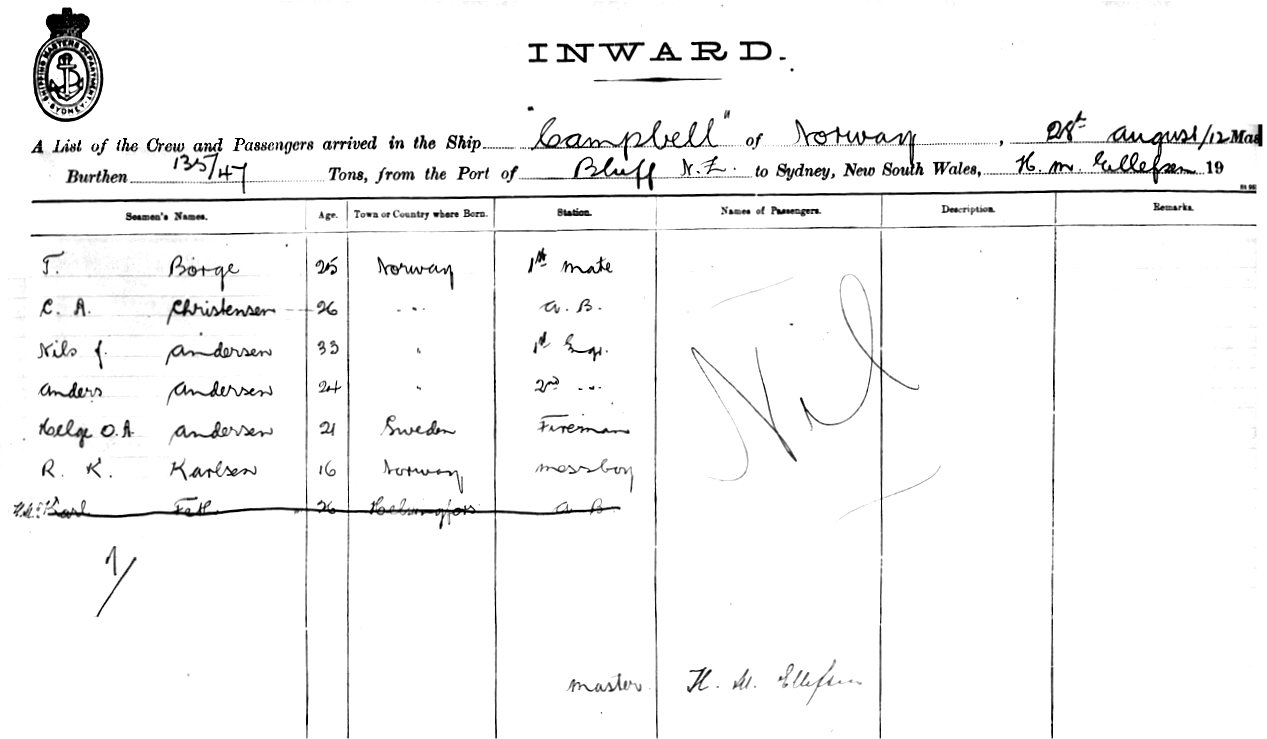 SHIPPING MASTERS DEPARTMENT. SYDNEY
INWARD.
A List of the Crew and Passengers arrived in the Ship "Campbell" of Norway, 28th August/12 Mas
Burthen 135/47 Tons, from the Port of Bluff N.Z. to Sydney, New South Wales, H. M. Ellefsen 19
Seamen's Names. Age. Town or Country where Born. Station. Names of Passengers. Description. Remarks.
T. Borge 25 Norway 1st Mate
C. A. Christensen 26 " " A. B.
Nils J. Andersen 33 " 1st Engr.
Anders Andersen 24 " 2nd " "
Helge O. A Andersen 21 Sweden Fireman
R. K. Karlsen 16 Norway Messboy
Karl 26 Helsingfors A B.
Nil
7/
Master H. M. Ellefsen